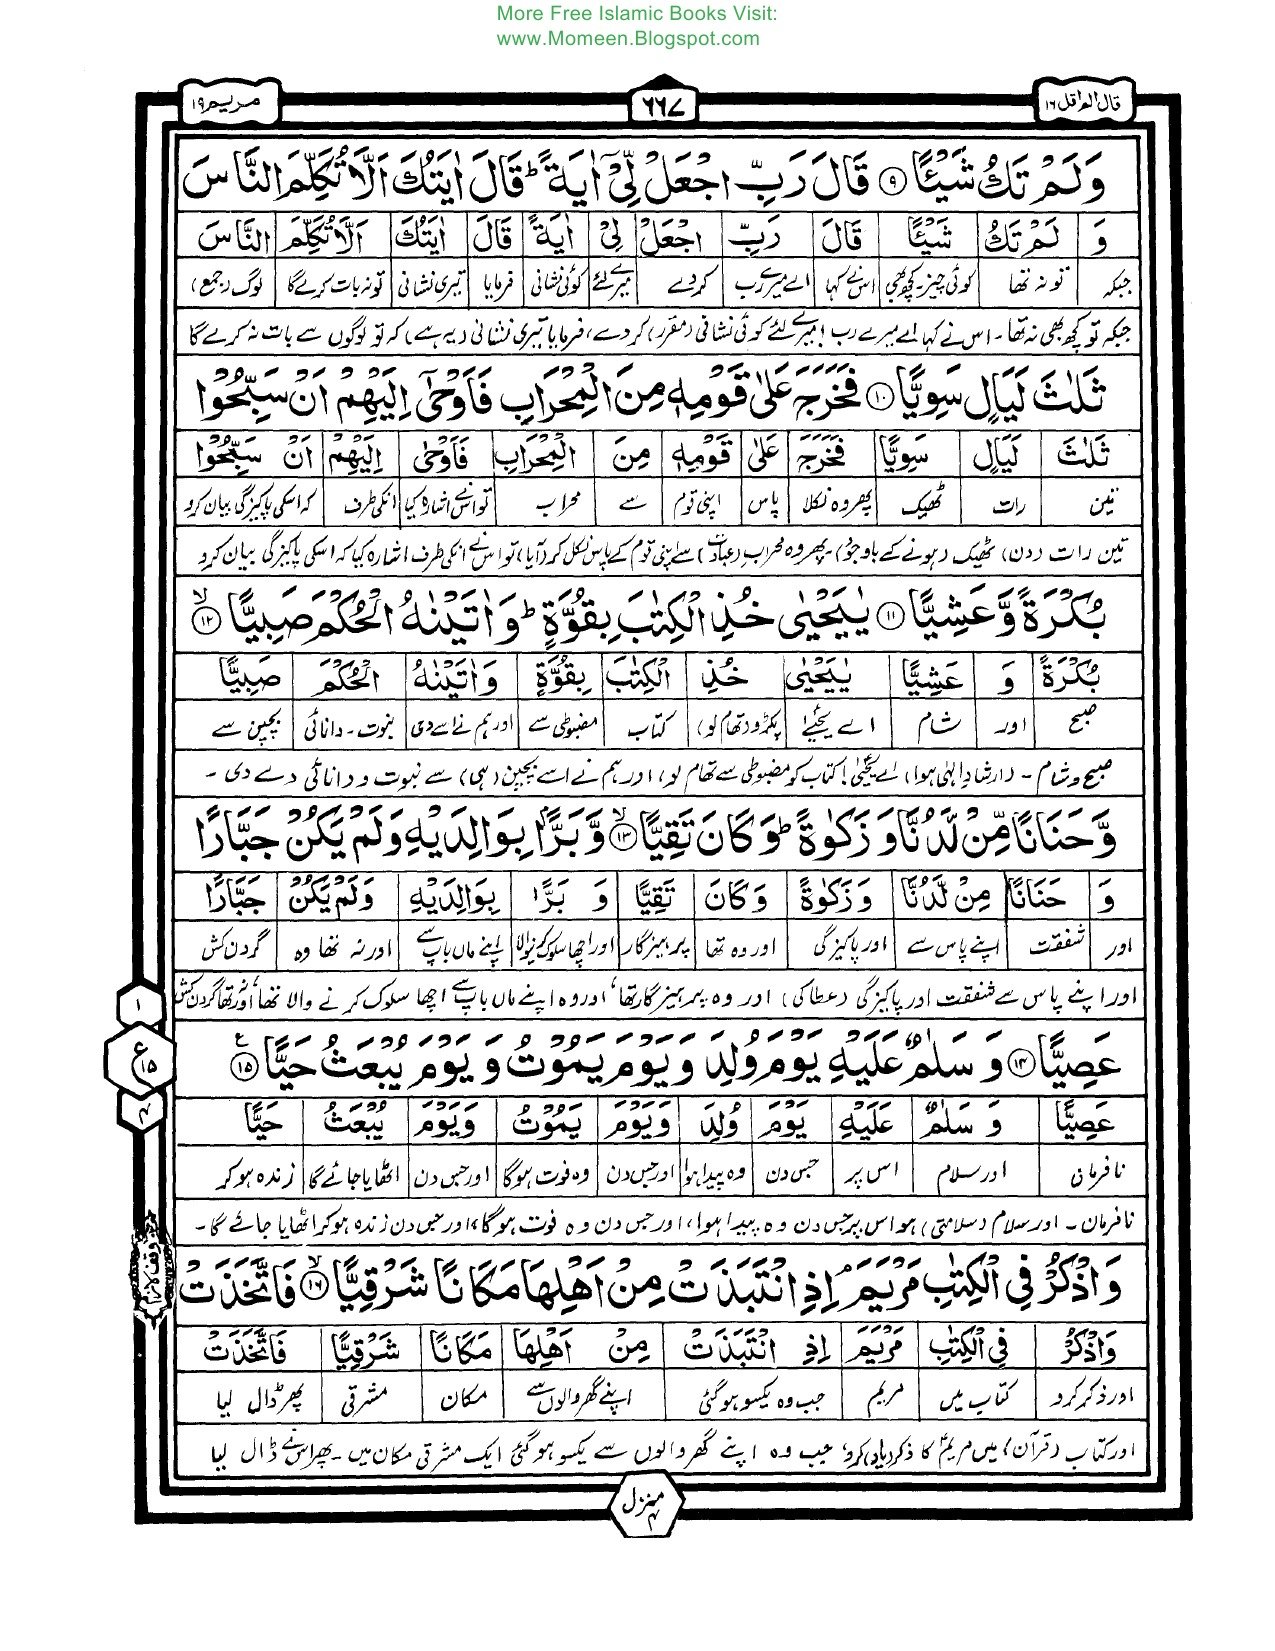 More Free Islamic Books Visit:
www.Momeen.Blogspot.com
قال الم اقل ۱۶
۶۶۷
مریم ۱۹
وَلَمْ تَكُ شَيْئًا ۹ قَالَ رَبِّ اجْعَلْ لِّيْٓ اٰيَةً ؕ قَالَ اٰيَتُكَ اَلَّا تُكَلِّمَ النَّاسَ
وَ لَمْ تَكُ شَيْئًا قَالَ رَبِّ اجْعَلْ لِيْ اٰيَةً قَالَ اٰيَتُكَ اَلَّا تُكَلِّمَ النَّاسَ
جبکہ تو نہ تھا کوئی چیز۔ کچھ بھی اس نے کہا اے میرے رب کردے میرے لئے کوئی نشانی فرمایا تیری نشانی تو نہ بات کرے گا لوگ (جمع)
جبکہ تو کچھ بھی نہ تھا۔ اس نے کہا اے میرے رب! میرے لئے کوئی نشانی (مقرر) کردے، فرمایا تیری نشانی (یہ ہے) کہ تو لوگوں سے بات نہ کرے گا
ثَلٰثَ لَيَالٍ سَوِيًّا ۱۰ فَخَرَجَ عَلٰى قَوْمِهٖ مِنَ الْمِحْرَابِ فَاَوْحٰٓى اِلَيْهِمْ اَنْ سَبِّحُوْا
ثَلٰثَ لَيَالٍ سَوِيًّا فَخَرَجَ عَلٰى قَوْمِهٖ مِنَ الْمِحْرَابِ فَاَوْحٰٓى اِلَيْهِمْ اَنْ سَبِّحُوْا
تین رات ٹھیک پھر وہ نکلا پاس اپنی قوم سے محراب تو اس نے اشارہ کیا انکی طرف کہ اسکی پاکیزگی بیان کرو
تین رات (دن) ٹھیک (ہونے کے باوجود)۔ پھر وہ محراب (عبادت) سے اپنی قوم کے پاس نکل کر (آیا) تو اس نے انکی طرف اشارہ کیا کہ اسکی پاکیزگی بیان کرو
بُكْرَةً وَّعَشِيًّا ۱۱ يٰيَحْيٰى خُذِ الْكِتٰبَ بِقُوَّةٍ ؕ وَاٰتَيْنٰهُ الْحُكْمَ صَبِيًّا ۱۲
بُكْرَةً وَ عَشِيًّا يٰيَحْيٰى خُذِ الْكِتٰبَ بِقُوَّةٍ وَاٰتَيْنٰهُ الْحُكْمَ صَبِيًّا
صبح اور شام اے یحییٰ پکڑو (تھام لو) کتاب مضبوطی سے اور ہم نے اسے دی نبوت۔ دانائی بچپن سے
صبح و شام۔ (ارشادِ الٰہی ہوا) اے یحییٰ! کتاب کو مضبوطی سے تھام لو، اور ہم نے اسے بچپن (ہی) سے نبوت و دانائی دے دی۔
وَّحَنَانًا مِّنْ لَّدُنَّا وَزَكٰوةً ؕ وَكَانَ تَقِيًّا ۱۳ وَّبَرًّا بِوَالِدَيْهِ وَلَمْ يَكُنْ جَبَّارًا
وَ حَنَانًا مِنْ لَّدُنَّا وَزَكٰوةً وَكَانَ تَقِيًّا وَ بَرًّا بِوَالِدَيْهِ وَلَمْ يَكُنْ جَبَّارًا
اور شفقت اپنے پاس سے اور پاکیزگی اور وہ تھا پرہیزگار اور اچھا سلوک کرنیوالا اپنے ماں باپ سے اور نہ تھا وہ گردن کش
اور اپنے پاس سے شفقت اور پاکیزگی (عطا کی) اور وہ پرہیزگار تھا، اور وہ اپنے ماں باپ سے اچھا سلوک کرنے والا تھا، اور نہ تھا گردن کش
عَصِيًّا ۱۴ وَ سَلٰمٌ عَلَيْهِ يَوْمَ وُلِدَ وَيَوْمَ يَمُوْتُ وَيَوْمَ يُبْعَثُ حَيًّا ۱۵
۱
ع ۱۵
۴
عَصِيًّا وَ سَلٰمٌ عَلَيْهِ يَوْمَ وُلِدَ وَيَوْمَ يَمُوْتُ وَيَوْمَ يُبْعَثُ حَيًّا
نافرمانی اور سلام اس پر جس دن وہ پیدا ہوا اور جس دن وہ فوت ہوگا اور جس دن اٹھایا جائے گا زندہ ہو کر
نافرمان۔ اور سلام (سلامتی) ہو اس پر جس دن وہ پیدا ہوا، اور جس دن وہ فوت ہوگا، اور جس دن زندہ ہو کر اٹھایا جائے گا۔
وَاذْكُرْ فِي الْكِتٰبِ مَرْيَمَ ۘ اِذِ انْتَبَذَتْ مِنْ اَهْلِهَا مَكَانًا شَرْقِيًّا ۱۶ فَاتَّخَذَتْ
وقف لازم
وَاذْكُرْ فِي الْكِتٰبِ مَرْيَمَ اِذِ انْتَبَذَتْ مِنْ اَهْلِهَا مَكَانًا شَرْقِيًّا فَاتَّخَذَتْ
اور ذکر کرو کتاب میں مریم جب وہ یکسو ہوگئی اپنے گھر والوں سے مکان مشرقی پھر ڈال لیا
اور کتاب (قرآن) میں مریمؑ کا ذکر (یاد) کرو، جب وہ اپنے گھر والوں سے یکسو ہوگئی ایک مشرقی مکان میں۔ پھر اس نے ڈال لیا
منزل ۴